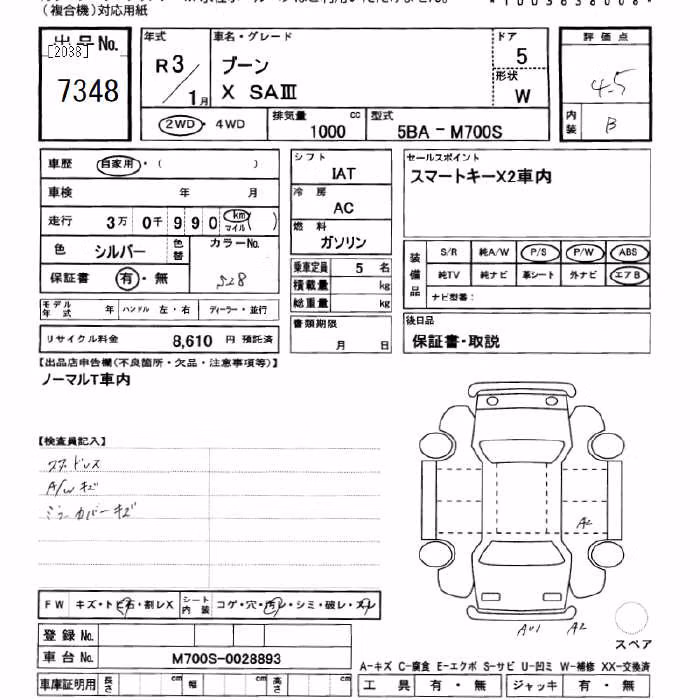 (複合機)対応用紙
出品No.
[2038]
7348
年式
R3
1月
車名・グレード
ブーン
X SAⅢ
ドア
5
形状
W
評価点
4.5
内装
B
2WD・4WD
排気量
1000 cc
型式
5BA - M700S
車歴 自家用・( )
車検 年 月
走行 3万 0千 9 9 0 km マイル ( )
色 シルバー 色替 カラーNo.
S28
保証書 有・無
モデル年式 年 ハンドル 左・右 ディーラー・並行
リサイクル料金 8,610 円 預託済
シフト
IAT
冷房
AC
燃料
ガソリン
乗車定員 5 名
積載量 kg
総重量 kg
書類期限
月 日
セールスポイント
スマートキーX2車内
装備品
S/R 純A/W P/S P/W ABS
純TV 純ナビ 革シート 外ナビ エアB
ナビ型番:
後日品
保証書・取説
【出品店申告欄(不良箇所・欠品・注意事項等)】
ノーマルT車内
【検査員記入】
スタッドレス
A/Wキズ
ミラーカバーキズ
FW キズ・トビ石・割レX シート内装 コゲ・穴・汚レ・シミ・破レ・スレ
登録No.
車台No. M700S-0028893
車庫証明用 長さ cm 幅 cm 高さ cm
A2
A1 A2
スペア
A-キズ C-腐食 E-エクボ S-サビ U-凹ミ W-補修 XX-交換済
工具 有・無 ジャッキ 有・無